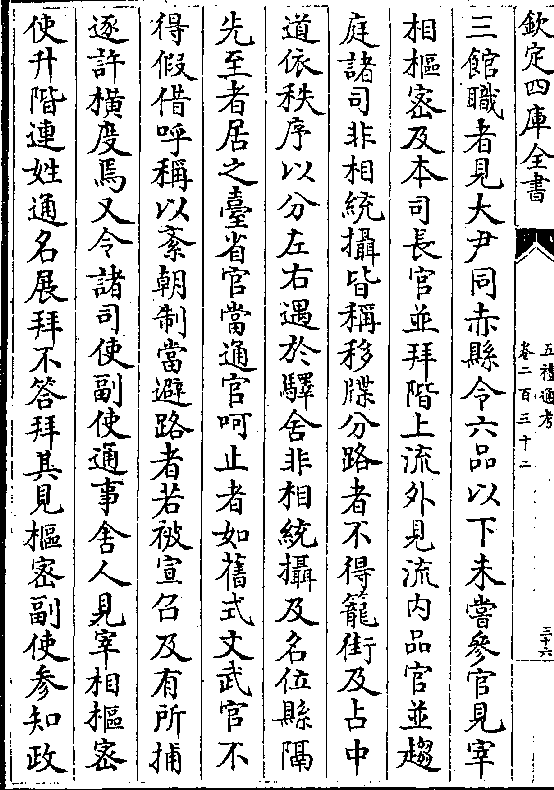 欽定四庫全書
五禮通考
卷二百三十二
三十六
三館職者見大尹同赤縣令六品以下未嘗參官見宰
相樞宻及本司長官並拜階上流外見流内品官並趨
庭諸司非相統攝皆稱移牒分路者不得籠街及占中
道依秩序以分左右遇於驛舍非相統攝及名位縣隔
先至者居之臺省官當通官呵止者如舊式文武官不
得假借呼稱以紊朝制當避路者若被宣召及有所捕
逐許橫度焉又令諸司使副使通事舍人見宰相樞宻
使升階連姓通名展拜不答拜其見樞宻副使參知政